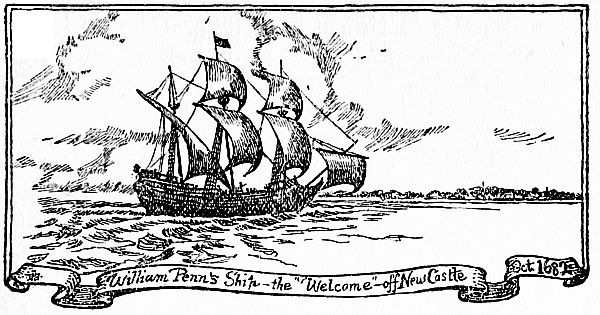 William Penn's Ship - the "Welcome" - off New Castle
Oct. 1682